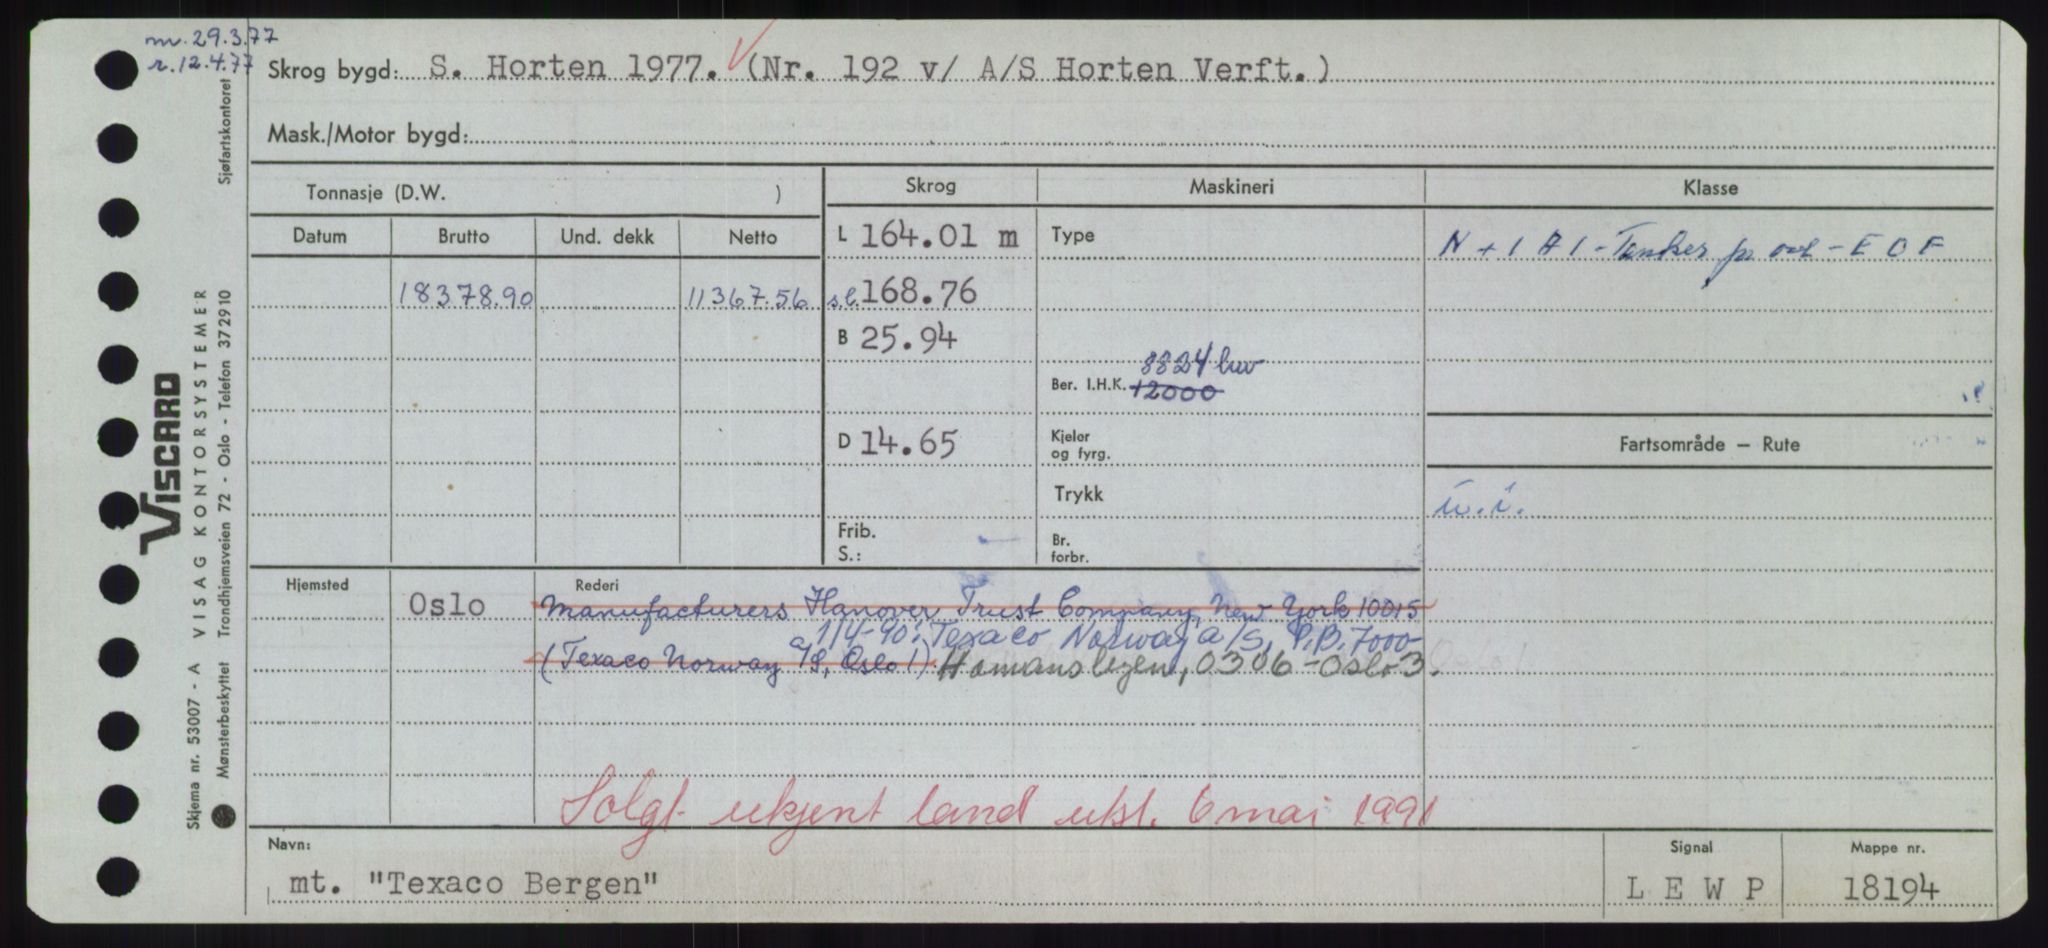 m. 29.3.77
r. 12.4.77
Skrog bygd: S. Horten 1977. (Nr. 192 v/ A/S Horten Verft.)
Mask./Motor bygd:
Tonnasje (D.W. )
Skrog
Maskineri
Klasse
Datum
Brutto
Und. dekk
Netto
L 164.01 m
Type
N + 1 A 1 - Tanker for oil - E O F
18378.90
11367.56
s.l. 168.76
B 25.94
8824 kw
Ber. I.H.K. 12000
D 14.65
Kjeler
og fyrg.
Fartsområde — Rute
Trykk
u. i.
Frib.
S.:
Br.
forbr.
Hjemsted
Oslo
Rederi
Manufacturers Hanover Trust Company, New York 10015
1/4-90: Texaco Norway A/S, P.B. 7000
(Texaco Norway A/S, Oslo 1). Homansbyen, 0306 - Oslo 3.
Solgt ukjent land utsl. 6 mai 1991
Navn:
mt. "Texaco Bergen"
Signal
L E W P
Mappe nr.
18194
Skjema nr. 53007 - A VISAG KONTORSYSTEMER Sjøfartskontoret
Mønsterbeskyttet Trondhjemsveien 72 - Oslo - Telefon 372910
VISCARD